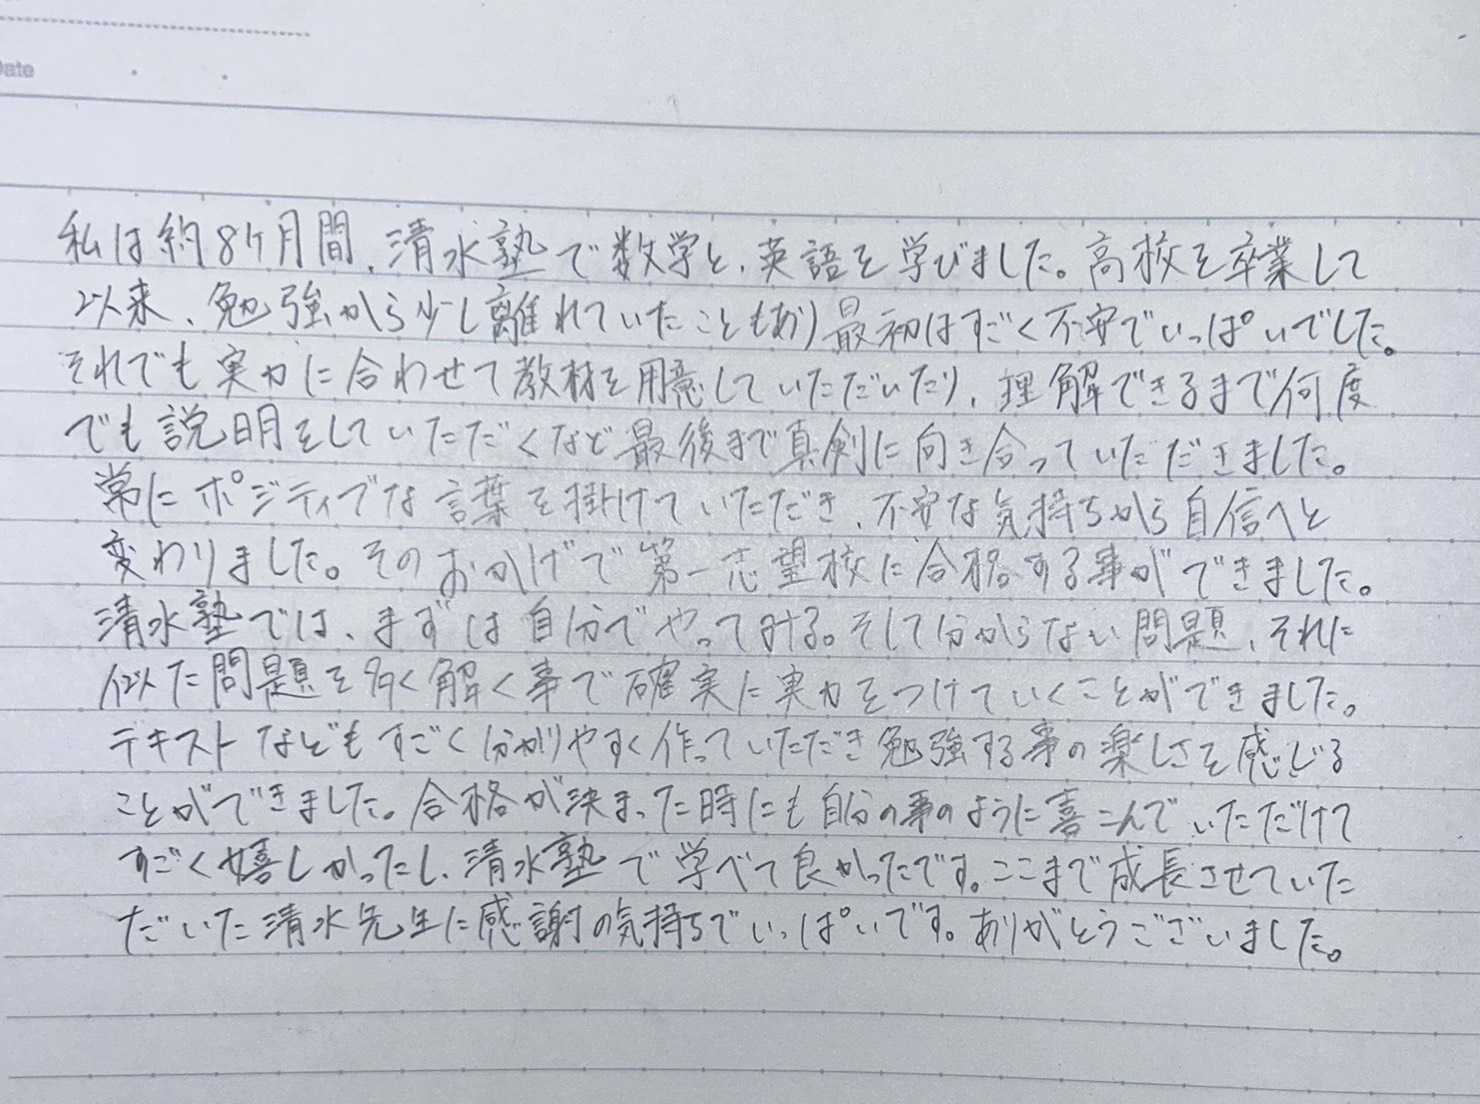 Date
私は約8ケ月間、清水塾で数学と、英語を学びました。高校を卒業して
以来、勉強から少し離れていたこともあり最初はすごく不安でいっぱいでした。
それでも実力に合わせて教材を用意していただいたり、理解できるまで何度
でも説明をしていただくなど最後まで真剣に向き合っていただきました。
常にポジティブな言葉を掛けていただき、不安な気持ちから自信へと
変わりました。そのおかげで第一志望校に合格する事ができました。
清水塾では、まずは自分でやってみる。そして分からない問題、それに
似た問題を多く解く事で確実に実力をつけていくことができました。
テキストなどもすごく分かりやすく作っていただき勉強する事の楽しさを感じる
ことができました。合格が決まった時にも自分の事のように喜こんでいただけて
すごく嬉しかったし、清水塾で学べて良かったです。ここまで成長させていた
だいた清水先生に感謝の気持ちでいっぱいです。ありがとうございました。